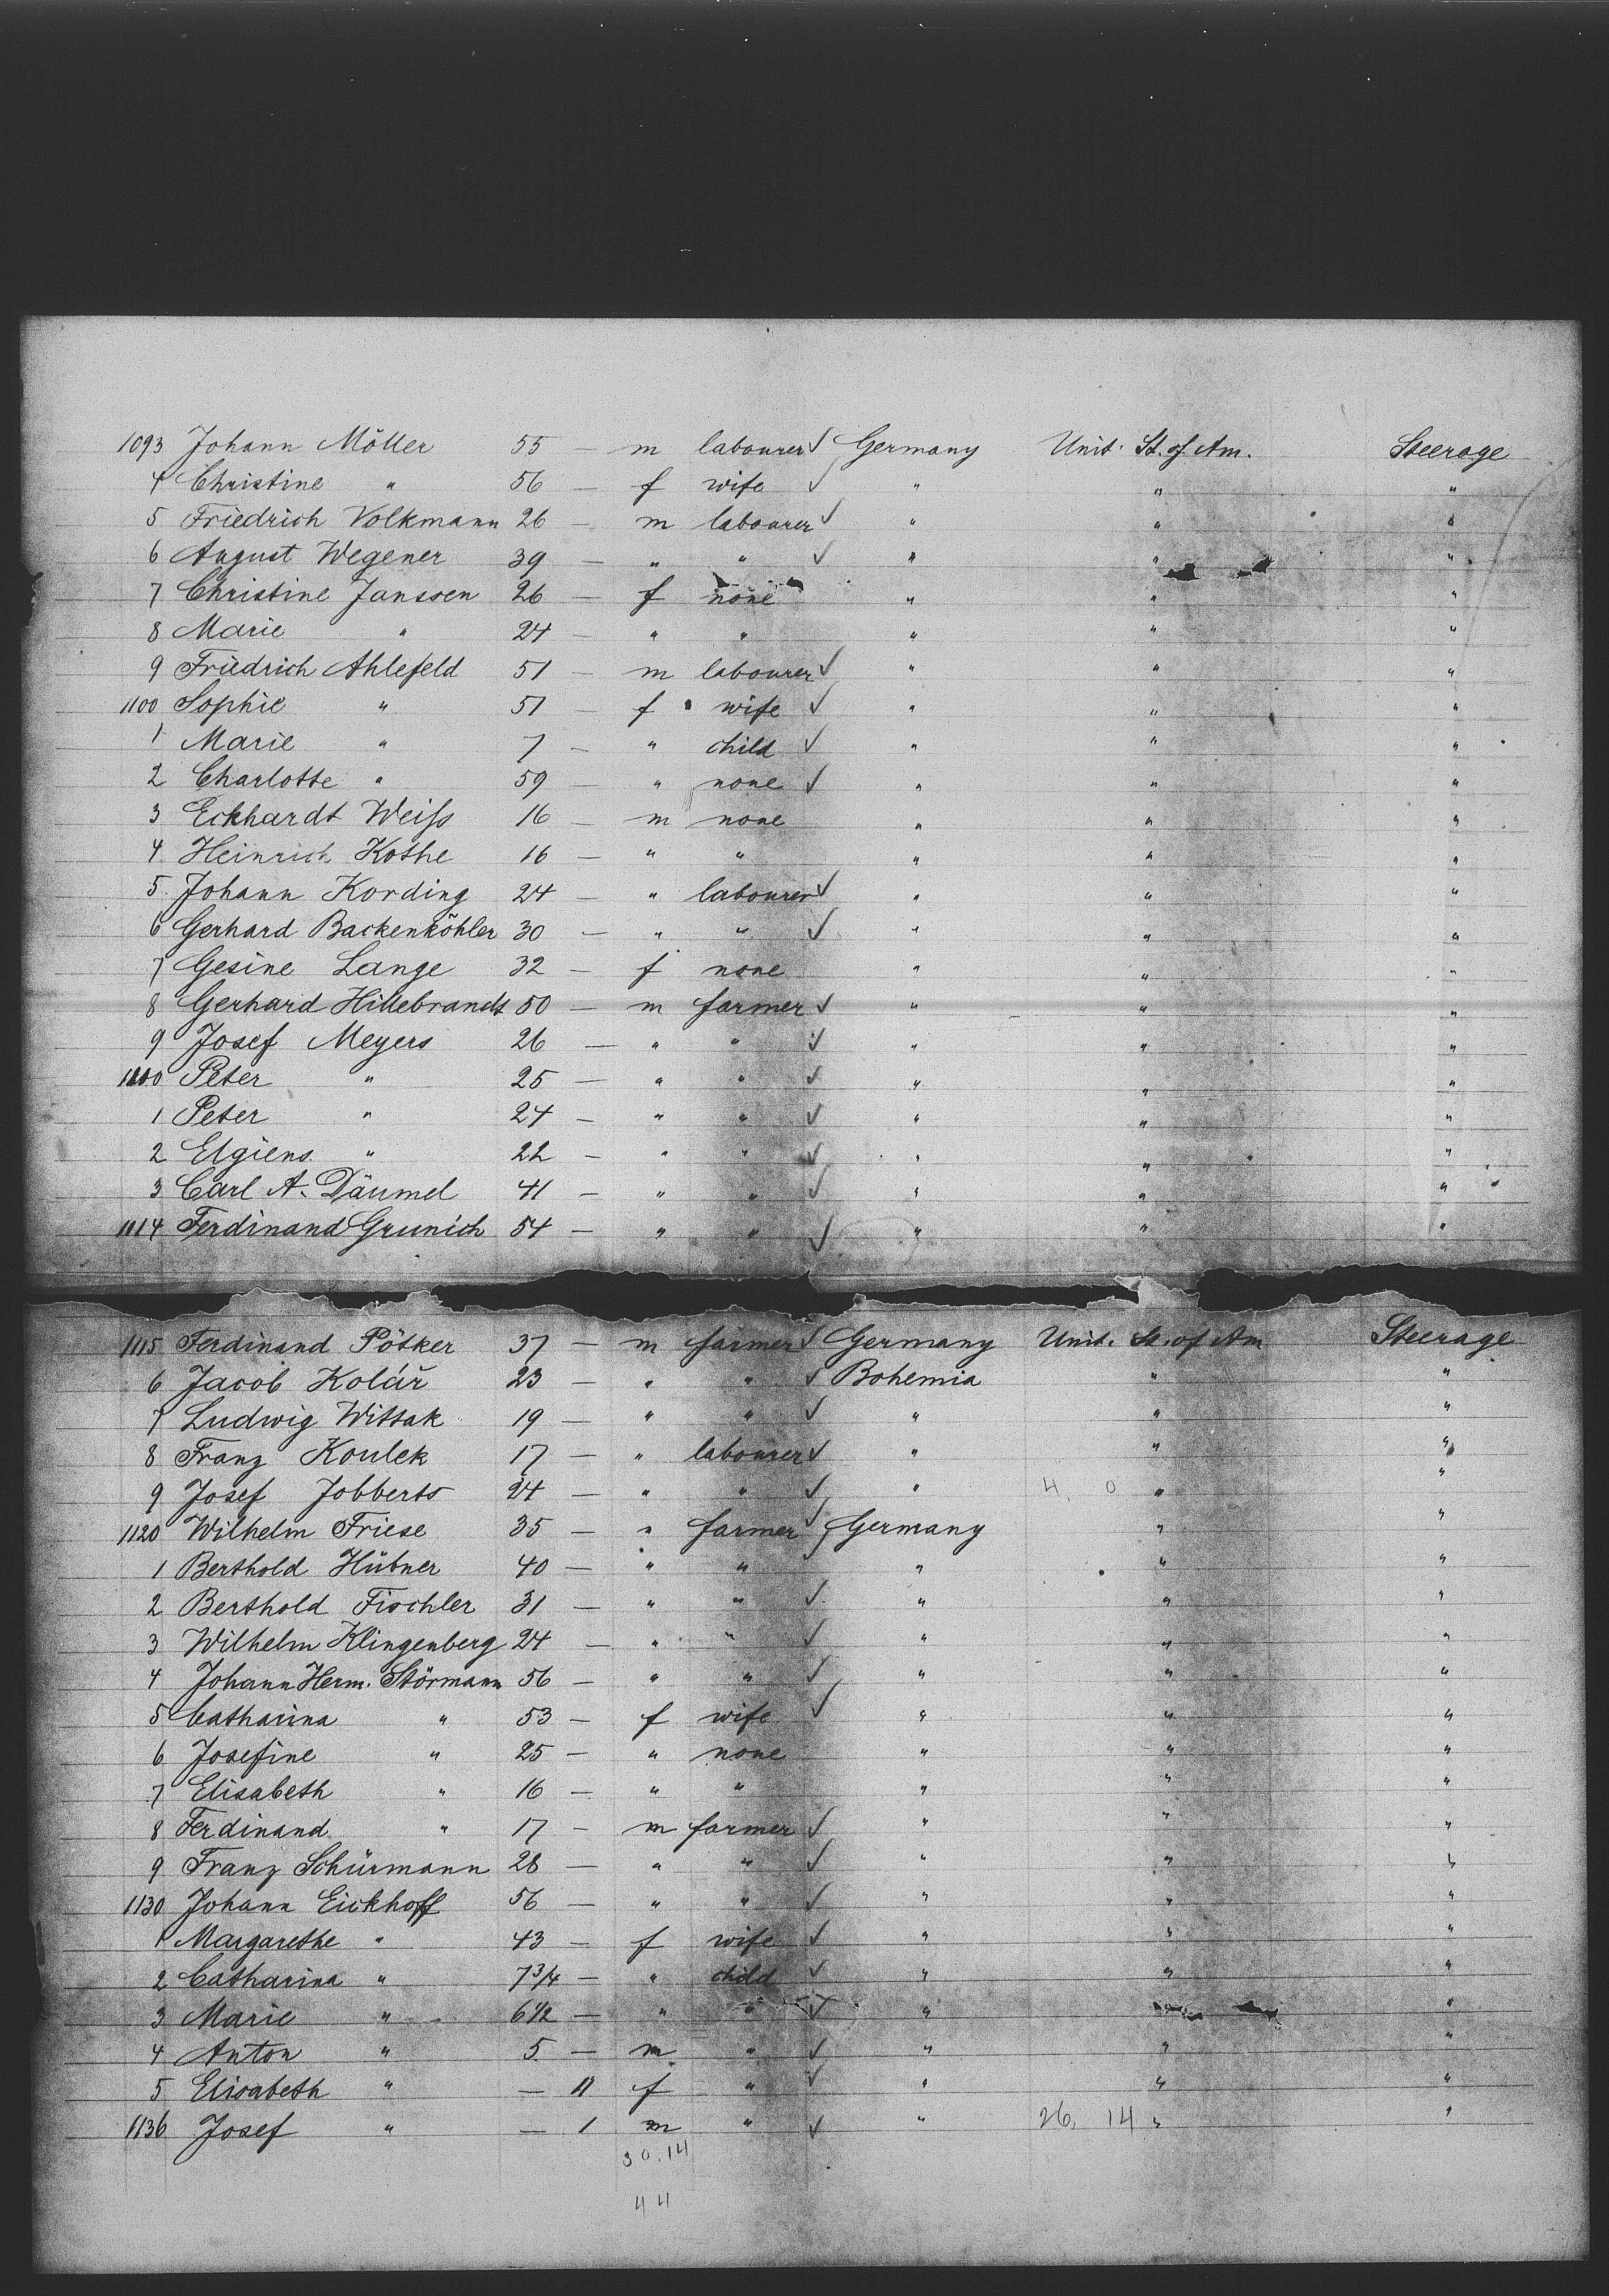 1093 Johann Möller 55 — m labourer ✓ Germany Unit. St. of Am. Steerage
4 Christine " 56 — f wife ✓ " " "
5 Friedrich Volkmann 26 — m labourer ✓ " " "
6 August Wegener 39 — " " ✓ " " "
7 Christine Janssen 26 — f none " " "
8 Marie " 24 — " " " " "
9 Friedrich Ahlefeld 51 — m labourer ✓ " " "
1100 Sophie " 51 — f wife ✓ " " "
1 Marie " 7 — " child ✓ " " "
2 Charlotte " 59 — " none ✓ " " "
3 Eckhardt Weiſs 16 — m none " " "
4 Heinrich Kothe 16 — " " " " "
5 Johann Kording 24 — " labourer ✓ " " "
6 Gerhard Backenköhler 30 — " " ✓ " " "
7 Gesine Lange 32 — f none " " "
8 Gerhard Hillebrandt 50 — m farmer ✓ " " "
9 Josef Meyers 26 — " " ✓ " " "
Peter " 25 — " " ✓ " " "
1 Peter " 24 — " " ✓ " " "
2 Elgiens " 22 — " " ✓ " " "
3 Carl A. Däumel 41 — " " ✓ " " "
1114 Ferdinand Grunich 54 — " " ✓ " " "
1115 Ferdinand Pötker 37 — m farmer ✓ Germany Unit. St. of Am Steerage
6 Jacob Kolář 23 — " " ✓ Bohemia " "
7 Ludwig Wittak 19 — " " ✓ " " "
8 Franz Koulek 17 — " labourer ✓ " " "
9 Josef Jobberts 24 — " " ✓ " 4. 0 " "
1120 Wilhelm Friese 35 — " farmer ✓ Germany " "
1 Berthold Hübner 40 — " " " " "
2 Berthold Fischler 31 — " " ✓ " " "
3 Wilhelm Klingenberg 24 — " " ✓ " " "
4 Johann Herm. Störmann 56 — " " ✓ " " "
5 Catharina " 53 — f wife ✓ " " "
6 Josefine " 25 — " none " " "
7 Elisabeth " 16 — " " " " "
8 Ferdinand " 17 — m farmer ✓ " " "
9 Franz Schürmann 28 — " " ✓ " " "
1130 Johann Eickhoff 56 — " " ✓ " " "
1 Margarethe " 43 — f wife ✓ " " "
2 Catharina " 7 3/4 — " child ✓ " " "
3 Marie " 6 1/2 — " " ✓ " " "
4 Anton " 5 — m " ✓ " " "
5 Elisabeth " — 11 f " ✓ " " "
1136 Josef " — 1 m " ✓ " 26. 14 " "
30.14
44